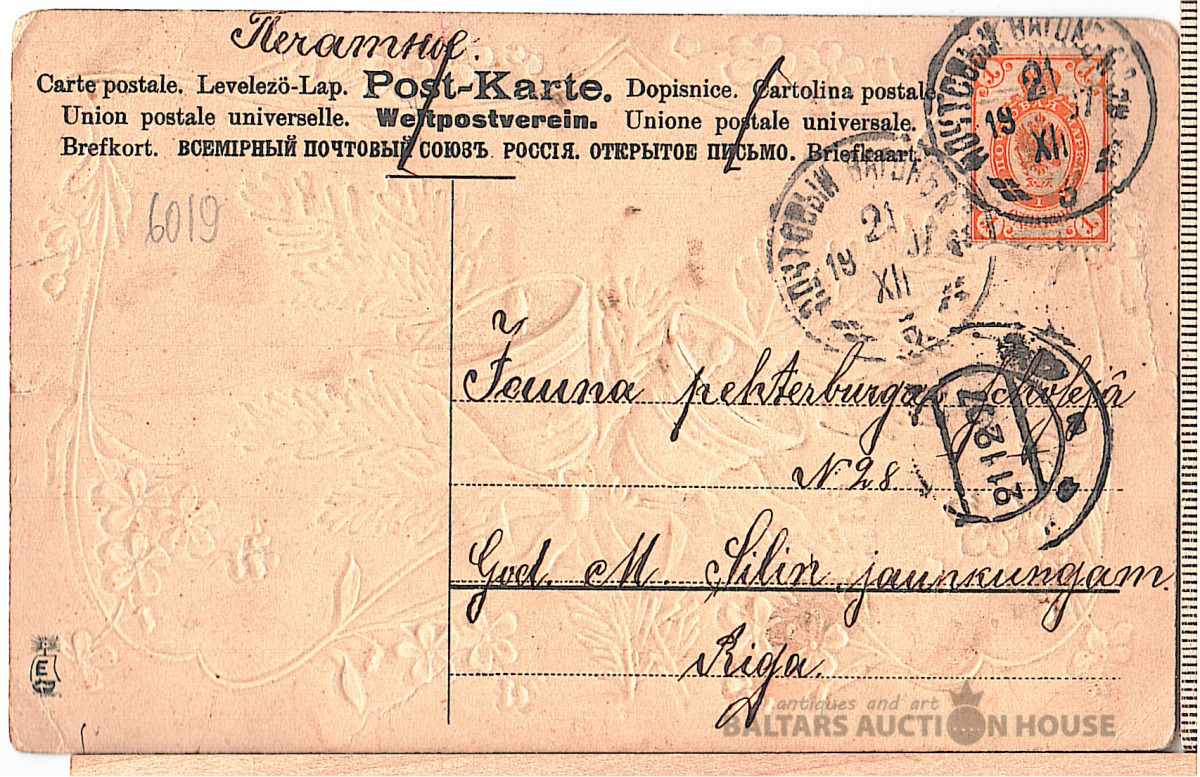 Печатное.
Carte postale. Levelezö-Lap. Post-Karte. Dopisnice. Cartolina postale.
Union postale universelle. Weltpostverein. Unione postale universale.
Brefkort. ВСЕМІРНЫЙ ПОЧТОВЫЙ СОЮЗЪ. РОССІЯ. ОТКРЫТОЕ ПИСЬМО. Briefkaart.
6019
ПОЧТОВЫЙ ВАГОНЪ
21
19 07
XII
5
ПОЧТОВЫЙ ВАГОНЪ
21
19 07
XII
5
ПОЧТОВАЯ МАРКА
1 1
Jauna pehterburgas scholejâ
N 28
21 12 07
God. M. Silin jaunkungam.
Riga.
E
antiques and art
BALTARS AUCTION HOUSE